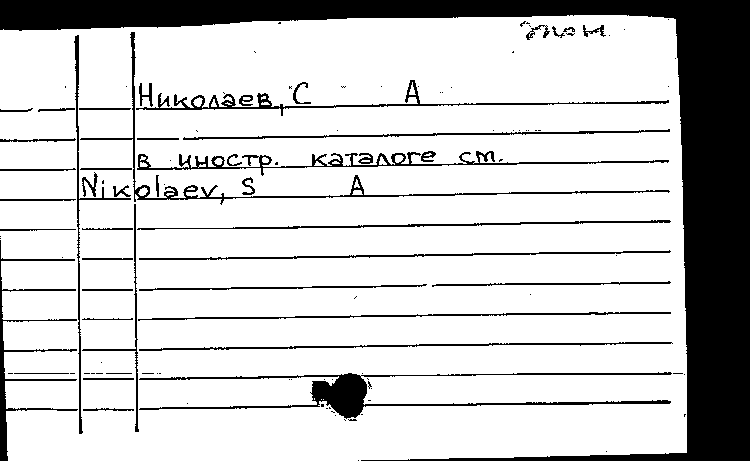 Николаев, С А
в иностр. каталоге см.
Nikolaev, S A